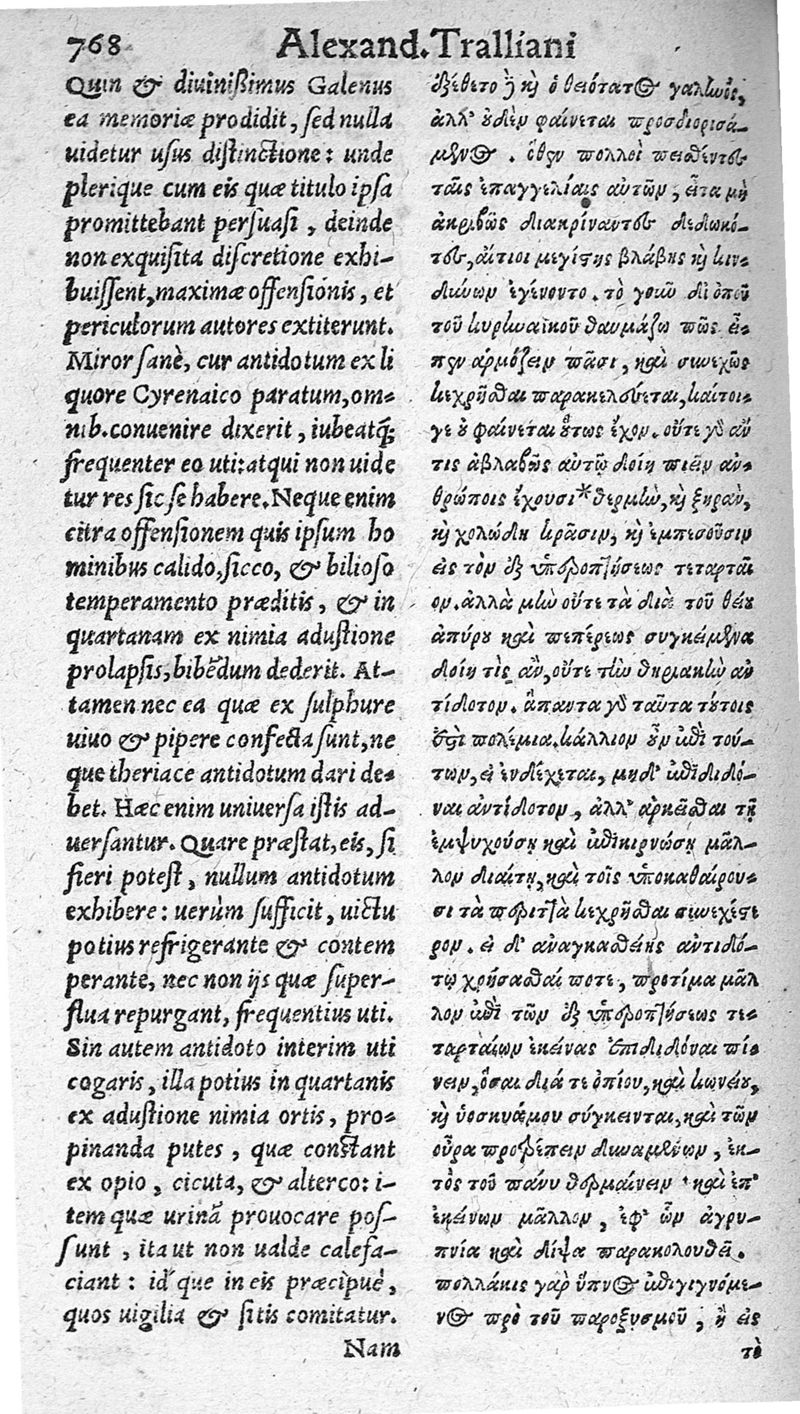 768 Alexand. Tralliani
Quin & diuinißimus Galenus
ea memoriæ prodidit, sed nulla
uidetur usus distinctione: unde
plerique cum eis quæ titulo ipsa
promittebant persuasi, deinde
non exquisita discretione exhi-
buissent, maximæ offensionis, et
periculorum autores extiterunt.
Miror sanè, cur antidotum ex li
quore Cyrenaico paratum, om-
nib. conuenire dixerit, iubeatq́;
frequenter eo uti: atqui non uide
tur res sic se habere. Neque enim
citra offensionem quis ipsum ho
minibus calido, sicco, & bilioso
temperamento præditis, & in
quartanam ex nimia adustione
prolapsis, bibẽdum dederit. At-
tamen nec ea quæ ex sulphure
uiuo & pipere confecta sunt, ne
que theriace antidotum dari de-
bet. Hæc enim uniuersa istis ad-
uersantur. Quare præstat, eis, si
fieri potest, nullum antidotum
exhibere: uerùm sufficit, uictu
potius refrigerante & contem
perante, nec non ijs quæ super-
flua repurgant, frequentius uti.
Sin autem antidoto interim uti
cogaris, illa potius in quartanis
ex adustione nimia ortis, pro-
pinanda putes, quæ constant
ex opio, cicuta, & alterco: i-
tem quæ urinã prouocare pos-
sunt, ita ut non ualde calefa-
ciant: id que in eis præcipuè,
quos uigilia & sitis comitatur.
Nam
ἐξέθετο ἢ κỳ ὁ θειότατος γαληνὸς,
ἀλλ' οὐδὲν φαίνεται προσδιορισά-
μενος. ὅθεν πολλοὶ πεισθέντες
ταῖς ἐπαγγελίαις αὐτῶν, εἶτα μὴ
ἀκριβῶς διακρίναντες δεδωκό-
τες, αἴτιοι μεγίστης βλάβης κỳ κιν-
δύνων ἐγίνοντο. τὸ γοῦν δι ὀποῦ
τοῦ κυρηναϊκοῦ θαυμάζω πῶς εἶ-
πεν ἁρμόζειν πᾶσι, καὶ συνεχῶς
κεχρῆσθαι παρακελεύεται, καίτοι-
γε οὐ φαίνεται οὕτως ἔχον. οὔτε γὰρ ἄν
τις ἀβλαβῶς αὐτῷ δοίη πιεῖν ἀν-
θρώποις ἔχουσι* θερμὴν, κỳ ξηρὰν,
κỳ χολώδη κρᾶσιν, κỳ ἐμπεσοῦσιν
εἰς τὸν ἐξ ὑπεροπτήσεως τεταρταῖ
ον. ἀλλὰ μὴν οὔτε τὰ διὰ τοῦ θείου
ἀπύρου καὶ πεπέρεως συγκείμενα
δοίη τὶς ἂν, οὔτε τὴν θηριακὴν ἀν
τίδοτον. ἅπαντα γὰρ ταῦτα τούτοις
ἐστὶ πολέμια. κάλλιον οὖν ἐπὶ τού-
των, εἰ ἐνδέχεται, μηδ' ἐπιδιδό-
ναι ἀντίδοτον, ἀλλ' ἀρκεῖσθαι τῇ
ἐμψυχούσῃ καὶ ἐπικιρνώσῃ μᾶλ-
λον διαίτῃ, καὶ τοῖς ὑποκαθαίρου-
σι τὰ περιττὰ κεχρῆσθαι συνεχέστε
ρον. εἰ δ' ἀναγκασθείης ἀντιδό-
τῳ χρήσασθαί ποτε, προτίμα μᾶλ
λον ἐπὶ τῶν ἐξ ὑπεροπτήσεως τε-
ταρταίων ἐκείνας ἐπιδιδόναι πί-
νειν, ὅσαι διά τε ὀπίου, καὶ κωνείου,
κỳ ὑοσκυάμου σύγκεινται, καὶ τῶν
οὖρα προτρέπειν δυναμένων, ἐκ-
τὸς τοῦ πάνυ θερμαίνειν· καὶ ἐπ'
ἐκείνων μᾶλλον, ἐφ' ὧν ἀγρυ-
πνία καὶ δίψα παρακολουθεῖ.
πολλάκις γὰρ ὕπνος ἐπιγιγνόμε-
νος πρὸ τοῦ παροξυσμοῦ, ἢ εἰς
τὸ